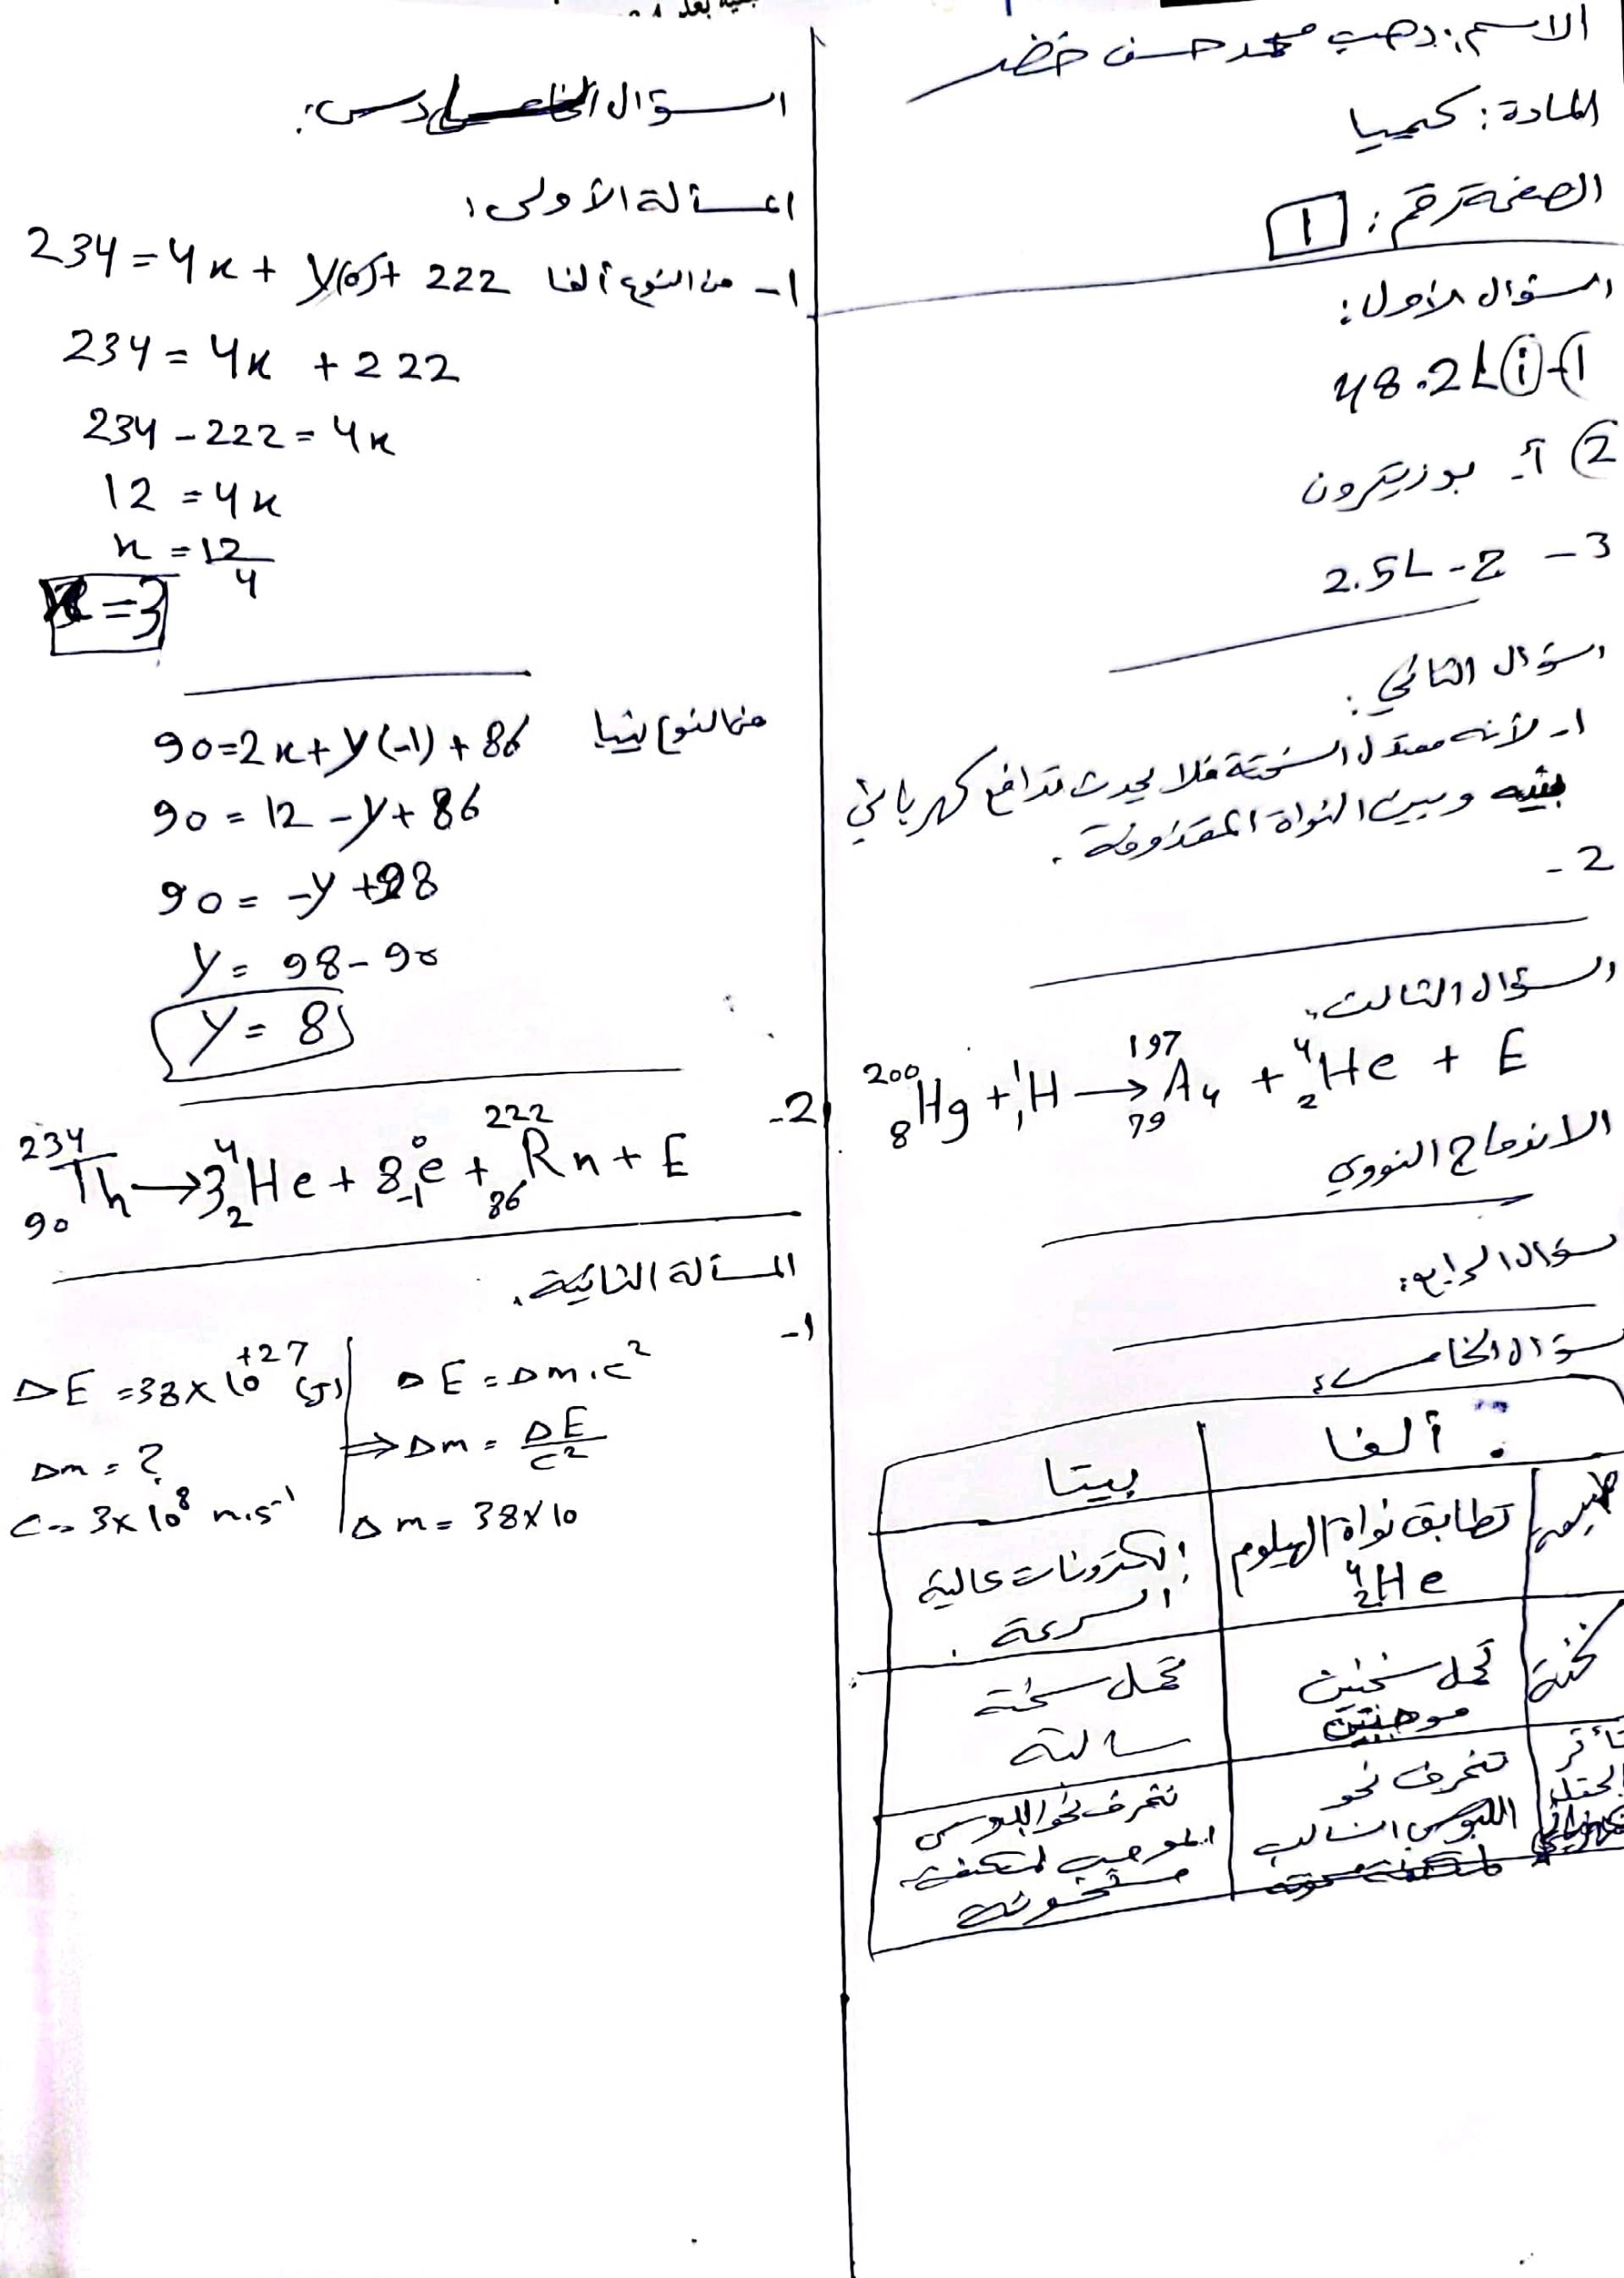 الاسم: وهيب محمد حسن خضر
المادة: كيميا
الصفحة رقم: 1
السؤال الأول:
1- 48.2L
2 أ- بوزيترون
3 - ج - 2.5L
السؤال الثاني:
1- لأنه معتدل الشحنة فلا يحدث تدافع كهربائي
بينه وبين النواة المقذوفة.
2 -
السؤال الثالث:
²⁰⁰₈Hg + ¹₁H → ¹⁹⁷₇₉Au + ⁴₂He + E
الاندماج النووي
سؤال الرابع:
سؤال الخامس:
ألفا
بيتا
طبيعة
تطابق نواة الهيلوم
⁴₂He
إلكترونات عالية
السرعة.
تحمل شحنتين
موجبتين
تحمل شحنة
سالبة
تأثر
الحقل
تنحرف نحو
اللبوس السالب
تنحرف نحو اللبوس
الموجب لمكثفة
مشحونة
السؤال السادس:
المسألة الأولى:
1- من النوع ألفا 234 = 4x + y(0) + 222
234 = 4x + 222
234 - 222 = 4x
12 = 4x
x = 12/4
x = 3
من النوع بيتا 90 = 2x + y(-1) + 86
90 = 12 - y + 86
90 = -y + 98
y = 98 - 90
y = 8
2- ²³⁴₉₀Th → 3⁴₂He + 8⁰₋₁e + ²²²₈₆Rn + E
المسألة الثانية.
1-
ΔE = 38×10⁺²⁷ (J)
Δm = ?
C = 3×10⁸ m.s⁻¹
ΔE = Δm.c²
⇒ Δm = ΔE/c²
Δm = 38×10